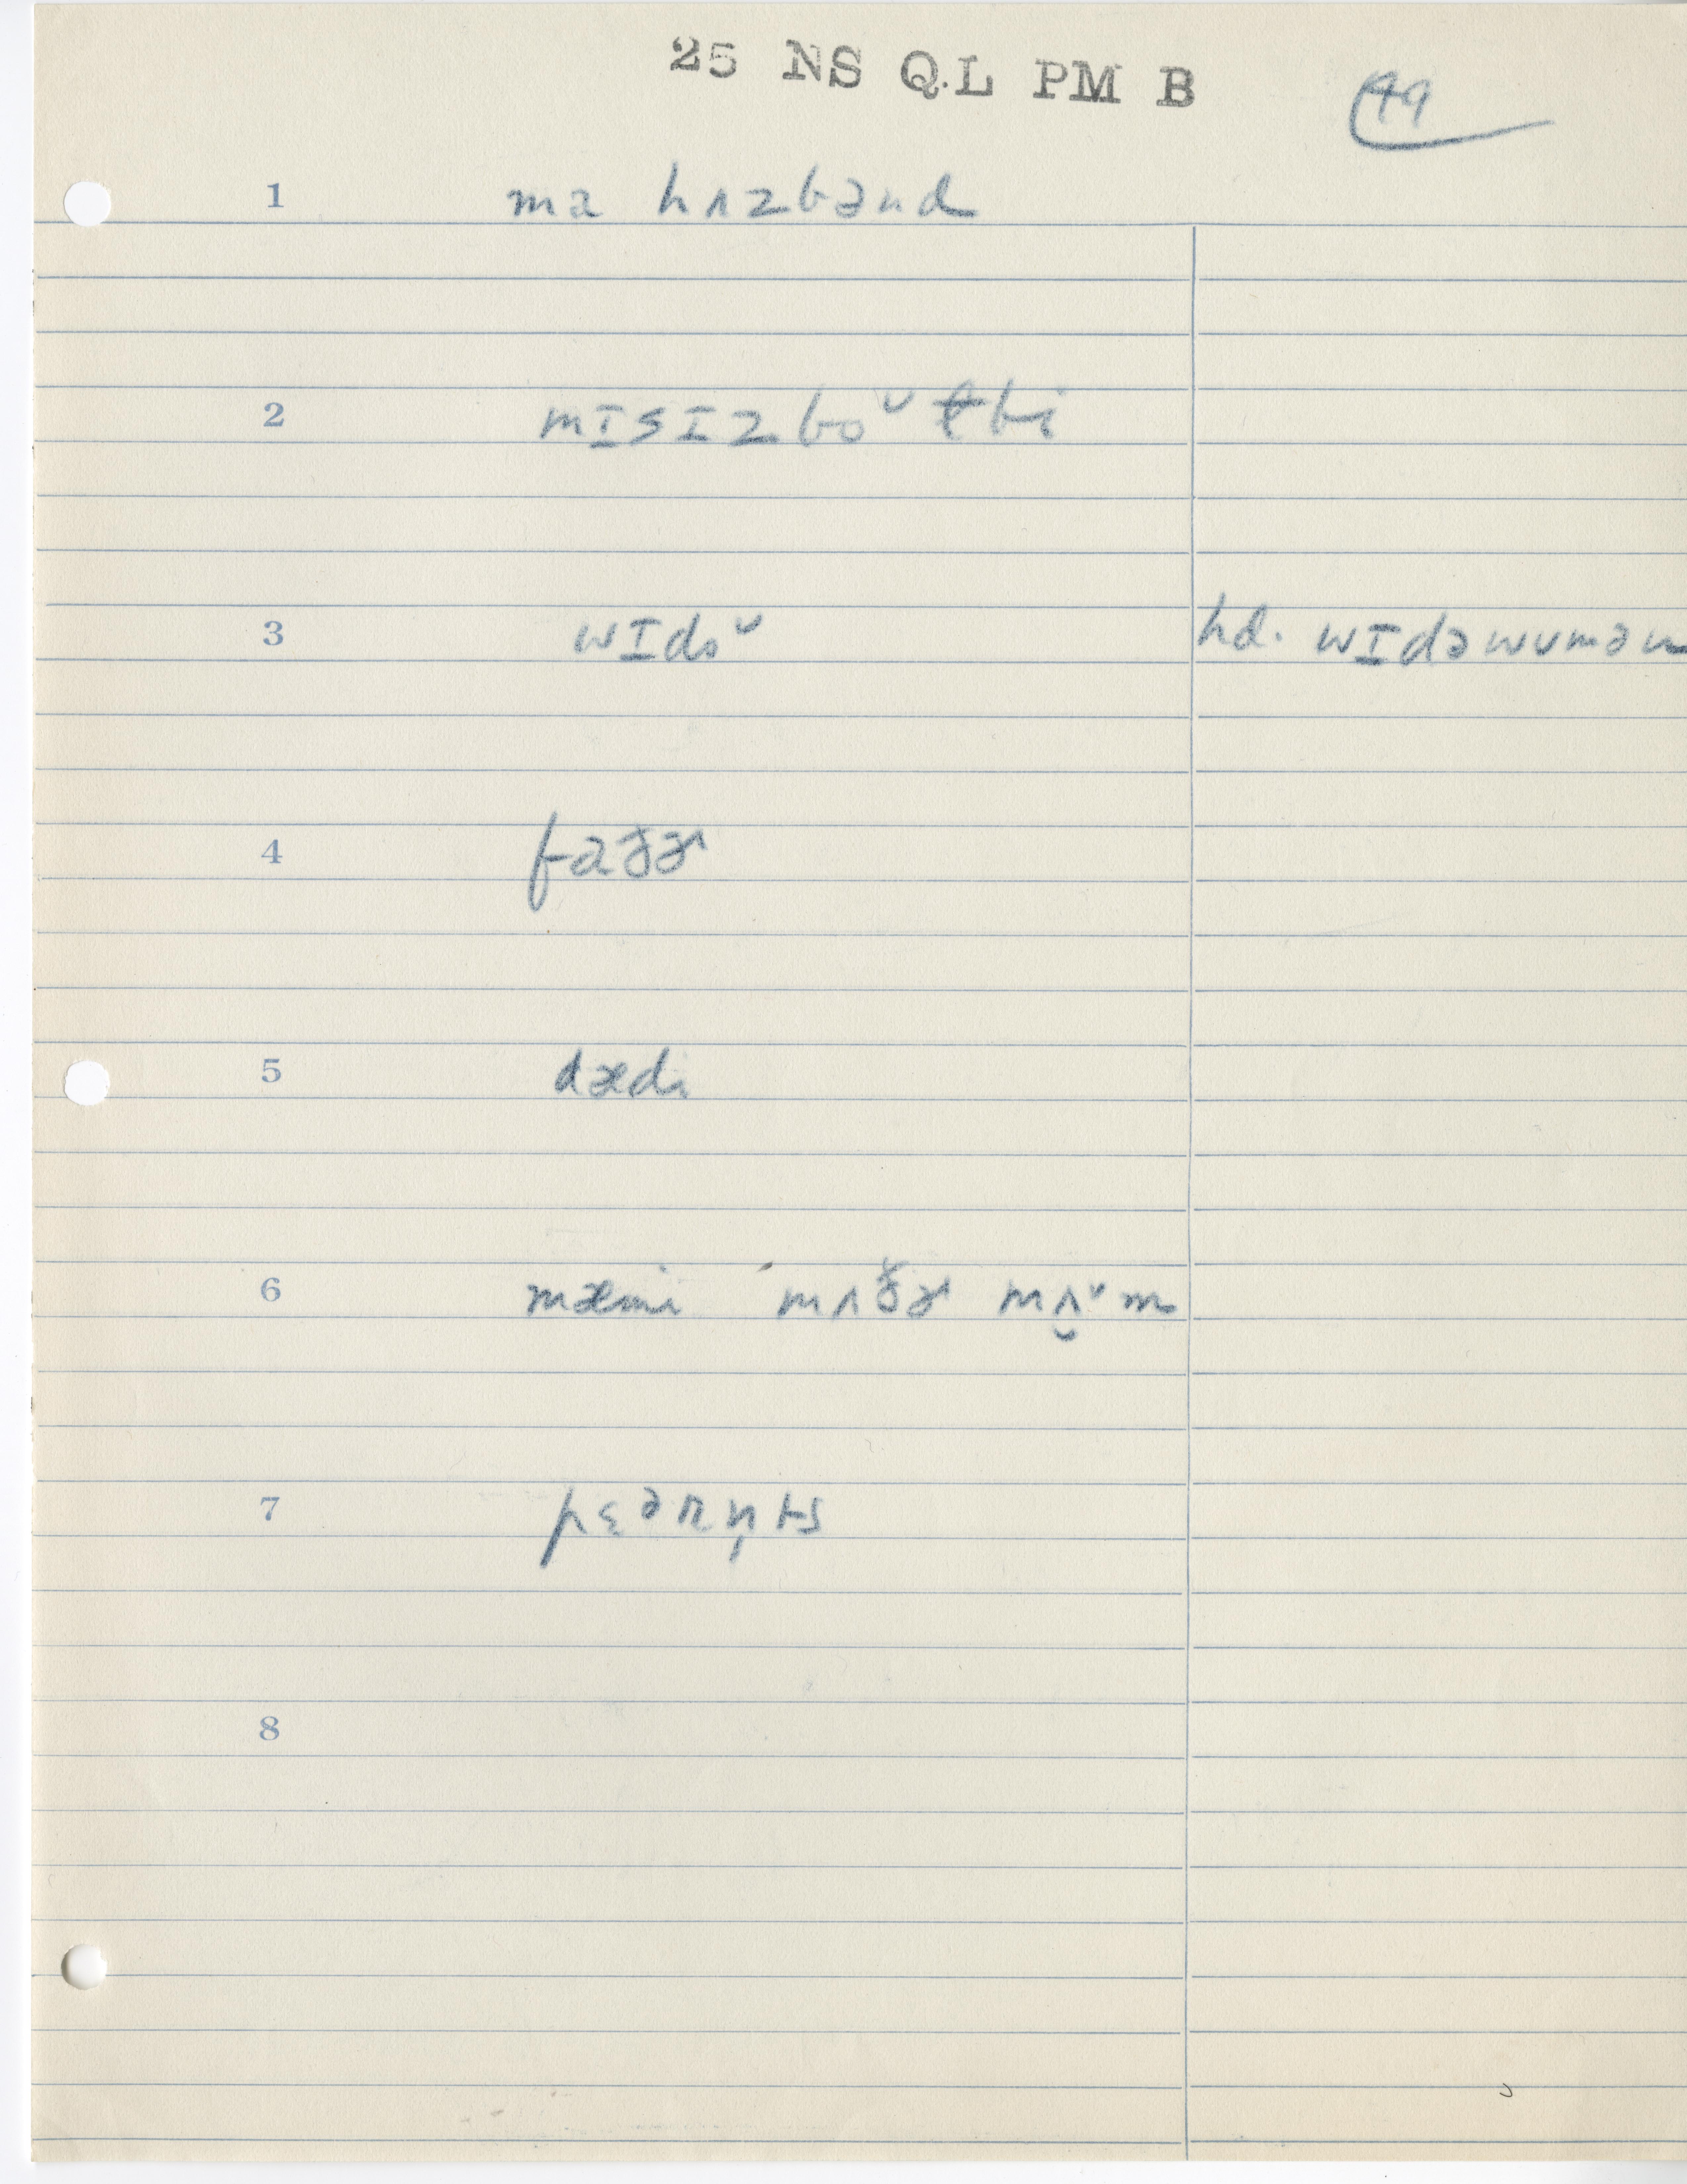 25 NS QL PM B 49
1 ma hʌzbənd
2 mɪsɪz boᶷɫbi
3 wɪdoᶷ hd. wɪdəwᴜmən
4 faðɚ
5 dædi
6 mæmi mʌðɚ mʌ̬ᶷm
7 pɛərn̩ts
8